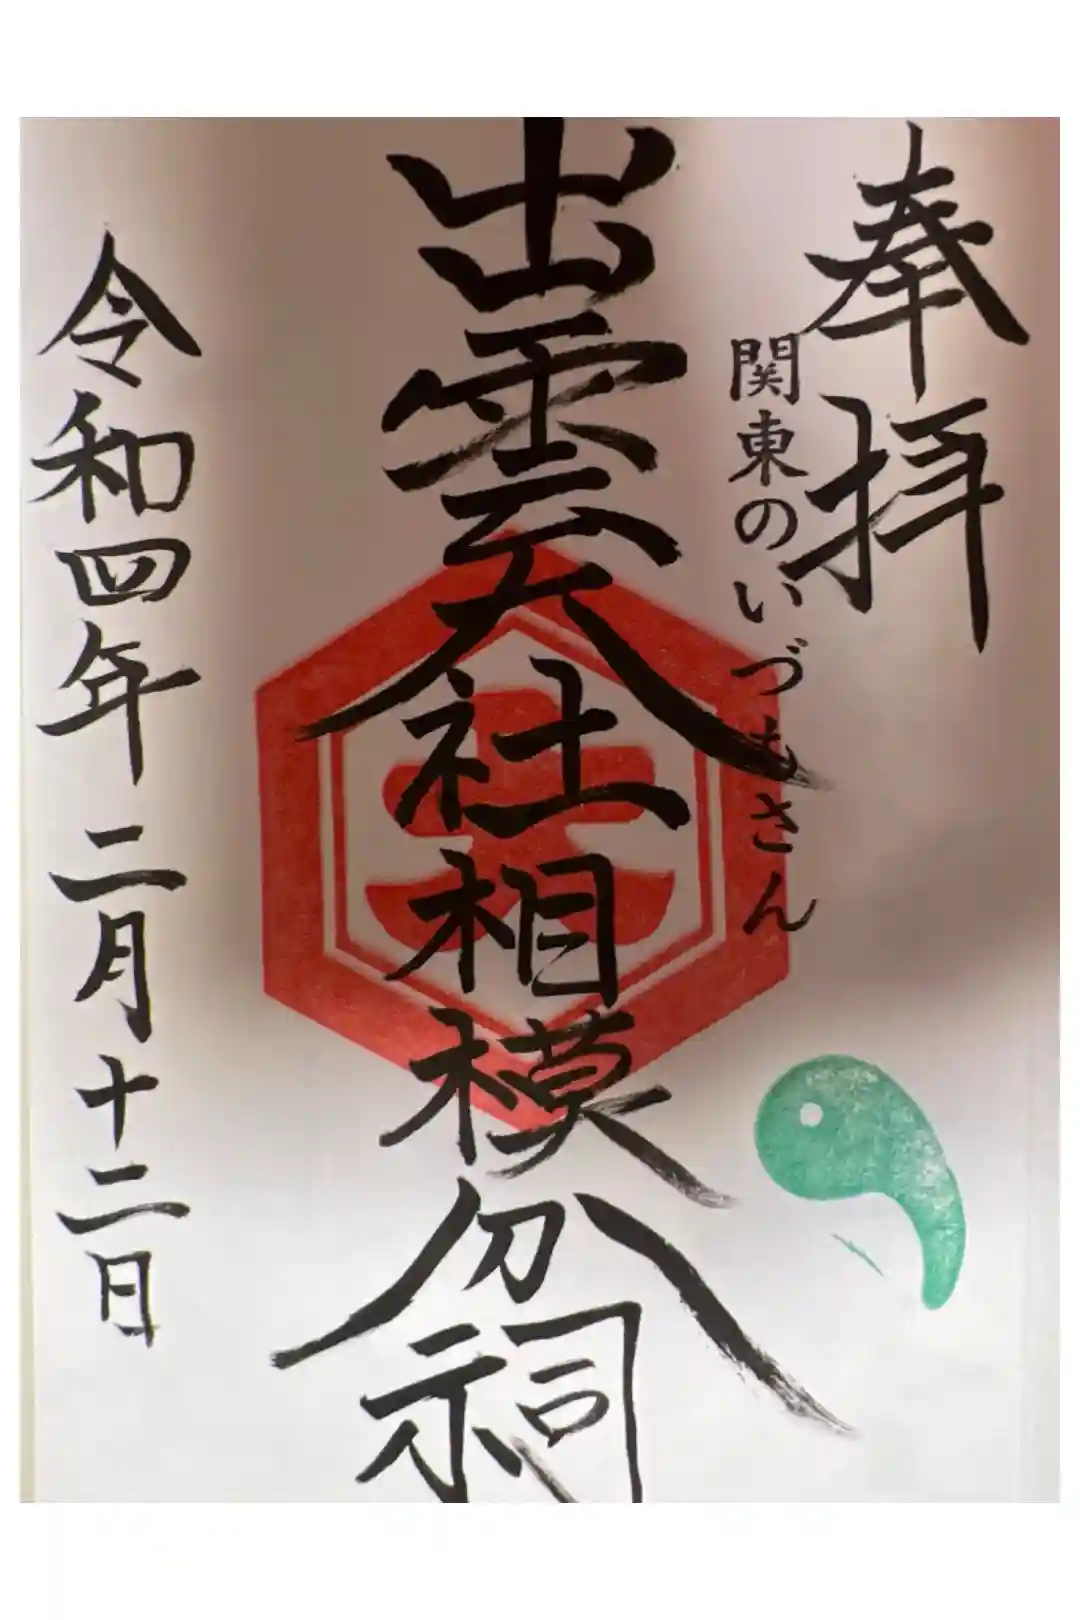 奉拝
関東のいづもさん
出雲大社相模分祠
令和四年二月十二日